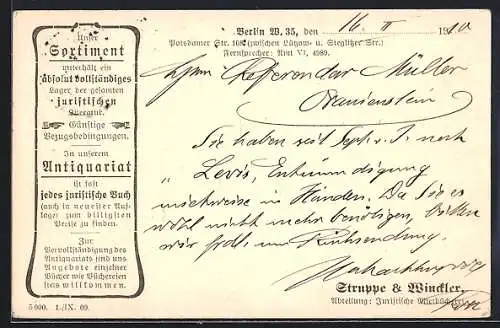 Unser
Sortiment
unterhält ein
absolut vollständiges
Lager der gesamten
juristischen
Literatur.
Günstige
Bezugsbedingungen.
In unserem
Antiquariat
ist fast
jedes juristische Buch
(auch in neuester Auf-
lage) zum billigsten
Preise zu finden.
Zur
Vervollständigung des
Antiquariats sind uns
Angebote einzelner
Bücher wie Bücherei en
stets willkommen.
5000. 1./IX. 09.
Berlin W. 35, den 16. II 1910
Potsdamer Str. 103 (zwischen Lützow- u. Steglitzer Str.)
Fernsprecher: Amt VI, 4989.
Herrn Referendar Müller
Oranienstein
Sie haben seit Sept. v. J. noch
" Levis, Entmündigung
in Händen. Da Sie es
wohl nicht mehr benötigen, bitten
wir um Rücksendung.
Hochachtungsvoll
Struppe & Winckler,
Abteilung: Juristische